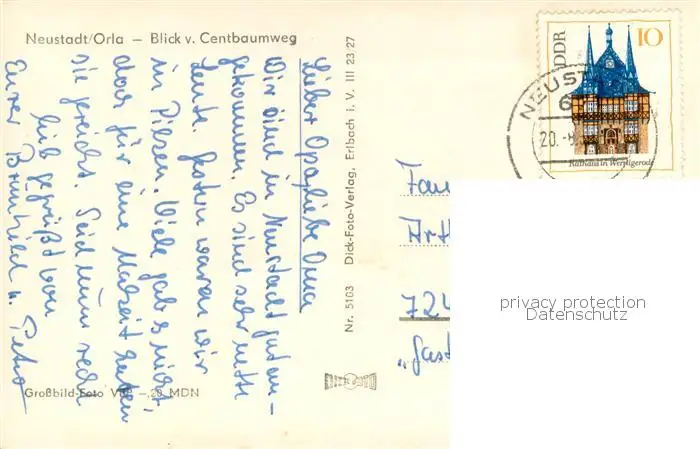 Neustadt/Orla — Blick v. Centbaumweg
Lieber Opa, liebe Oma
Wir sind in Neustadt gut an-
gekommen. Es sind sehr nette
Leute. Gestern waren wir
in Pilsen. Viele gab es nicht,
das für eine Mahlzeit hätten
sie gereicht. Seid nun recht
lieb gegrüßt von
Eurer Brünhild u. Petra
Großbild-Foto VEB —.20 MDN
Nr. 5103 Dick-Foto-Verlag, Erlbach i. V. III 23 27
DDR
10
Rathaus in Wernigerode
NEUST
6
20.-8
Fam
Arth
724
„Gast
privacy protection
Datenschutz